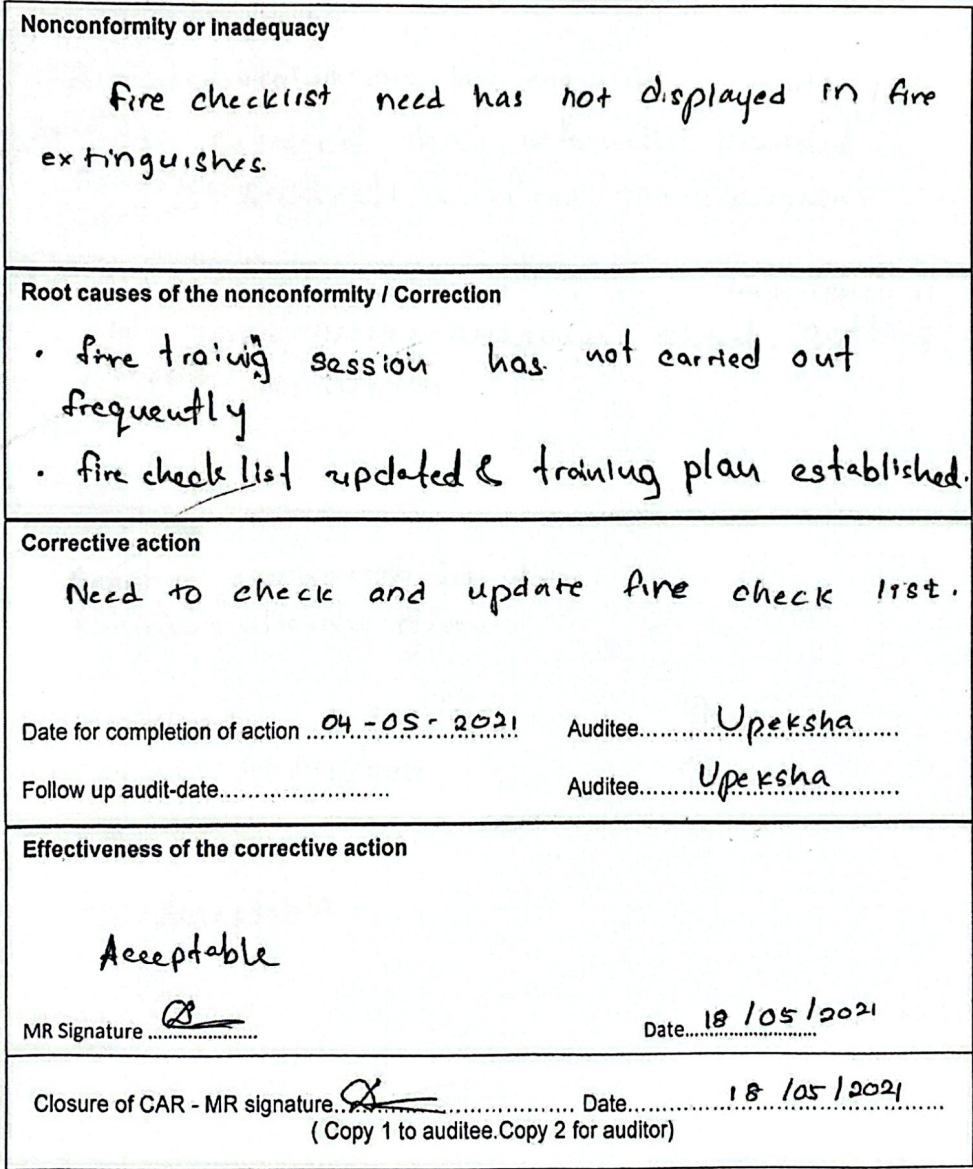 Nonconformity or Inadequacy
Fire checklist need has not displayed in fire
extinguishes.
Root causes of the nonconformity / Correction
• fire training session has not carried out
frequently
• fire check list updated & training plan established.
Corrective action
Need to check and update fire check list.
Date for completion of action ..04-05-2021 Auditee............Upeksha.......
Follow up audit-date........................ Auditee......Upeksha..........
Effectiveness of the corrective action
Acceptable
MR Signature ...................... Date...18/05/2021
Closure of CAR - MR signature........................ Date............18/05/2021
( Copy 1 to auditee.Copy 2 for auditor)